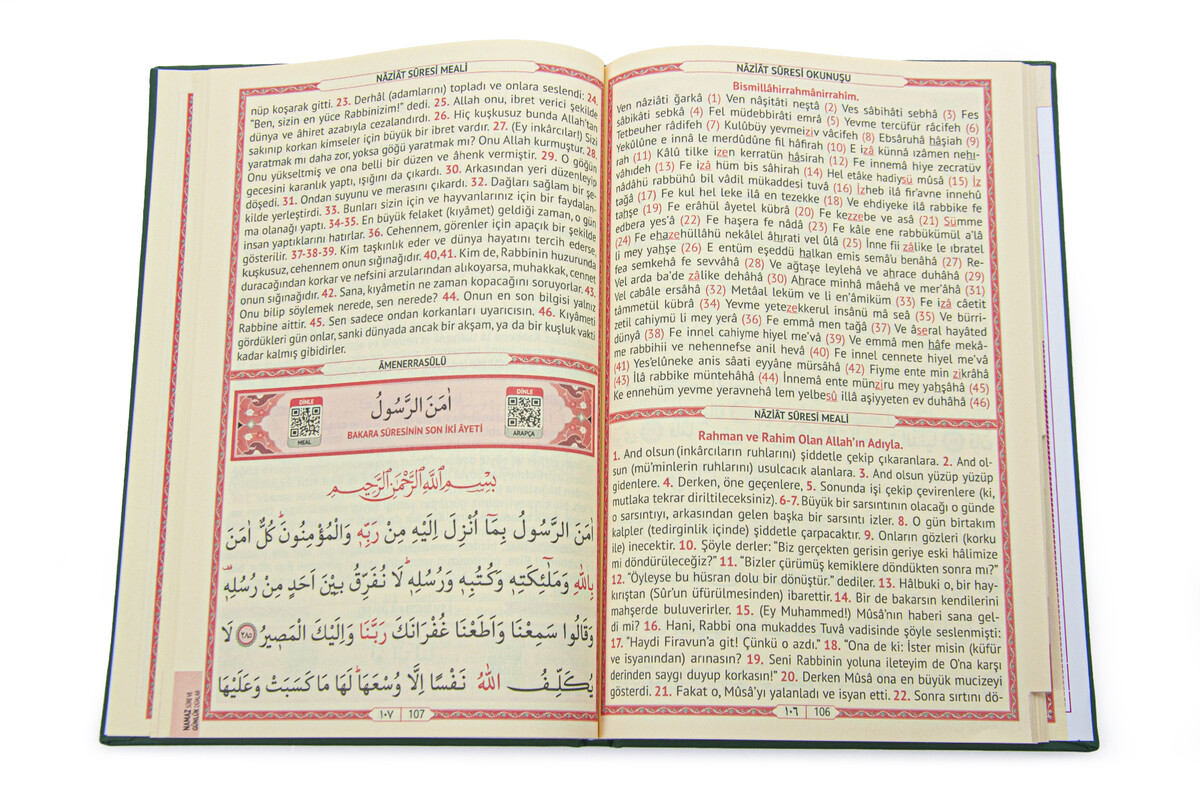 NÂZİÂT SÛRESİ OKUNUŞU
Bismillâhirrahmânirrahîm.
Ven nâziâti ğarkâ (1) Ven nâşitâti neştâ (2) Ves sâbihâti sebhâ (3) Fes
sâbikâti sebkâ (4) Fel müdebbirâti emrâ (5) Yevme tercüfür râcifeh (6)
Tetbeuher râdifeh (7) Kulûbüy yevmeiziv vâcifeh (8) Ebsâruhâ hâşiah (9)
Yekûlûne e innâ le merdûdûne fil hâfirah (10) E izâ künnâ izâmen nehı-
rah (11) Kâlû tilke izen kerratün hâsirah (12) Fe innemâ hiye zecratüv
vâhıdeh (13) Fe izâ hüm bis sâhirah (14) Hel etâke hadiysü mûsâ (15) İz
nâdâhü rabbühû bil vâdil mükaddesi tuvâ (16) İzheb ilâ fir'avne innehû
tağâ (17) Fe kul hel leke ilâ en tezekke (18) Ve ehdiyeke ilâ rabbike fe
tahşe (19) Fe erâhül âyetel kübrâ (20) Fe kezzebe ve asâ (21) Sümme
edbera yes'â (22) Fe haşera fe nâdâ (23) Fe kâle ene rabbükümül a'lâ
(24) Fe ehazehüllâhü nekâlel âhırati vel ûlâ (25) İnne fii zâlike le ıbratel
li mey yahşe (26) E entüm eşeddü halkan emis semâ'u benâhâ (27) Re-
fea semkehâ fe sevvâhâ (28) Ve ağtaşe leylehâ ve ahrace duhâhâ (29)
Vel arda ba'de zâlike dehâhâ (30) Ahrace minhâ mâehâ ve mer'âhâ (31)
Vel cabâle ersâhâ (32) Metâal leküm ve li en'âmiküm (33) Fe izâ câetit
tâmmetül kübrâ (34) Yevme yetezekkerul insânü mâ seâ (35) Ve bürri-
zetil cahiymü li mey yerâ (36) Fe emmâ men tağâ (37) Ve âseral hayâted
dünyâ (38) Fe innel cahiyme hiyel me'vâ (39) Ve emmâ men hâfe mekâ-
me rabbihii ve nehennefse anil hevâ (40) Fe innel cennete hiyel me'vâ
(41) Yes'elûneke anis sâati eyyâne mürsâhâ (42) Fiyme ente min zikrâhâ
(43) İlâ rabbike müntehâhâ (44) İnnemâ ente münziru mey yahşâhâ (45)
Ke ennehüm yevme yeravnehâ lem yelbesû illâ aşiyyeten ev duhâhâ (46)
NÂZİÂT SÛRESİ MEALİ
Rahman ve Rahim Olan Allah'ın Adıyla.
1. And olsun (inkârcıların ruhlarını) şiddetle çekip çıkaranlara. 2. And ol-
sun (mü'minlerin ruhlarını) usulcacık alanlara. 3. And olsun yüzüp yüzüp
gidenlere. 4. Derken, öne geçenlere, 5. Sonunda işi çekip çevirenlere (ki,
mutlaka tekrar diriltileceksiniz). 6-7. Büyük bir sarsıntının olacağı o günde
o sarsıntıyı, arkasından gelen başka bir sarsıntı izler. 8. O gün birtakım
kalpler (tedirginlik içinde) şiddetle çarpacaktır. 9. Onların gözleri (korku
ile) inecektir. 10. Şöyle derler: "Biz gerçekten gerisin geriye eski hâlimize
mi döndürüleceğiz?" 11. "Bizler çürümüş kemiklere döndükten sonra mı?"
12. "Öyleyse bu hüsran dolu bir dönüştür." dediler. 13. Hâlbuki o, bir hay-
kırıştan (Sûr'un üfürülmesinden) ibarettir. 14. Bir de bakarsın kendilerini
mahşerde buluverirler. 15. (Ey Muhammed!) Mûsâ'nın haberi sana gel-
di mi? 16. Hani, Rabbi ona mukaddes Tuvâ vadisinde şöyle seslenmişti:
17. "Haydi Firavun'a git! Çünkü o azdı." 18. "Ona de ki: İster misin (küfür
ve isyanından) arınasın? 19. Seni Rabbinin yoluna ileteyim de O'na karşı
derinden saygı duyup korkasın!" 20. Derken Mûsâ ona en büyük mucizeyi
gösterdi. 21. Fakat o, Mûsâ'yı yalanladı ve isyan etti. 22. Sonra sırtını dö-
١٠٦ 106
NÂZİÂT SÛRESİ MEALİ
nüp koşarak gitti. 23. Derhâl (adamlarını) topladı ve onlara seslendi: 24.
"Ben, sizin en yüce Rabbinizim!" dedi. 25. Allah onu, ibret verici şekilde
dünya ve âhiret azabıyla cezalandırdı. 26. Hiç kuşkusuz bunda Allah'tan
sakınıp korkan kimseler için büyük bir ibret vardır. 27. (Ey inkârcılar!) Sizi
yaratmak mı daha zor, yoksa göğü yaratmak mı? Onu Allah kurmuştur. 28.
Onu yükseltmiş ve ona belli bir düzen ve âhenk vermiştir. 29. O göğün
gecesini karanlık yaptı, ışığını da çıkardı. 30. Arkasından yeri düzenleyip
döşedi. 31. Ondan suyunu ve merasını çıkardı. 32. Dağları sağlam bir şe-
kilde yerleştirdi. 33. Bunları sizin için ve hayvanlarınız için bir faydalan-
ma olanağı yaptı. 34-35. En büyük felaket (kıyâmet) geldiği zaman, o gün
insan yaptıklarını hatırlar. 36. Cehennem, görenler için apaçık bir şekilde
gösterilir. 37-38-39. Kim taşkınlık eder ve dünya hayatını tercih ederse,
kuşkusuz, cehennem onun sığınağıdır. 40,41. Kim de, Rabbinin huzurunda
duracağından korkar ve nefsini arzularından alıkoyarsa, muhakkak, cennet
onun sığınağıdır. 42. Sana, kıyâmetin ne zaman kopacağını soruyorlar. 43.
Onu bilip söylemek nerede, sen nerede? 44. Onun en son bilgisi yalnız
Rabbine aittir. 45. Sen sadece ondan korkanları uyarıcısın. 46. Kıyâmeti
gördükleri gün onlar, sanki dünyada ancak bir akşam, ya da bir kuşluk vakti
kadar kalmış gibidirler.
ÂMENERRASÛLÜ
DİNLE
MEAL
اٰمَنَ الرَّسُولُ
BAKARA SÛRESİNİN SON İKİ ÂYETİ
DİNLE
ARAPÇA
بِسْمِ اللّٰهِ الرَّحْمٰنِ الرَّحٖيمِ
اٰمَنَ الرَّسُولُ بِمَٓا اُنْزِلَ اِلَيْهِ مِنْ رَبِّهٖ وَالْمُؤْمِنُونَۜ كُلٌّ اٰمَنَ
بِاللّٰهِ وَمَلٰٓئِكَتِهٖ وَكُتُبِهٖ وَرُسُلِهٖۜ لَا نُفَرِّقُ بَيْنَ اَحَدٍ مِنْ رُسُلِهٖ۠
وَقَالُوا سَمِعْنَا وَاَطَعْنَا غُفْرَانَكَ رَبَّنَا وَاِلَيْكَ الْمَصٖيرُ ﴿٢٨٥﴾ لَا
يُكَلِّفُ اللّٰهُ نَفْسًا اِلَّا وُسْعَهَاۜ لَهَا مَا كَسَبَتْ وَعَلَيْهَا
١٠٧ 107
NAMAZ SÛRE VE
GÜNLÜK DUALAR